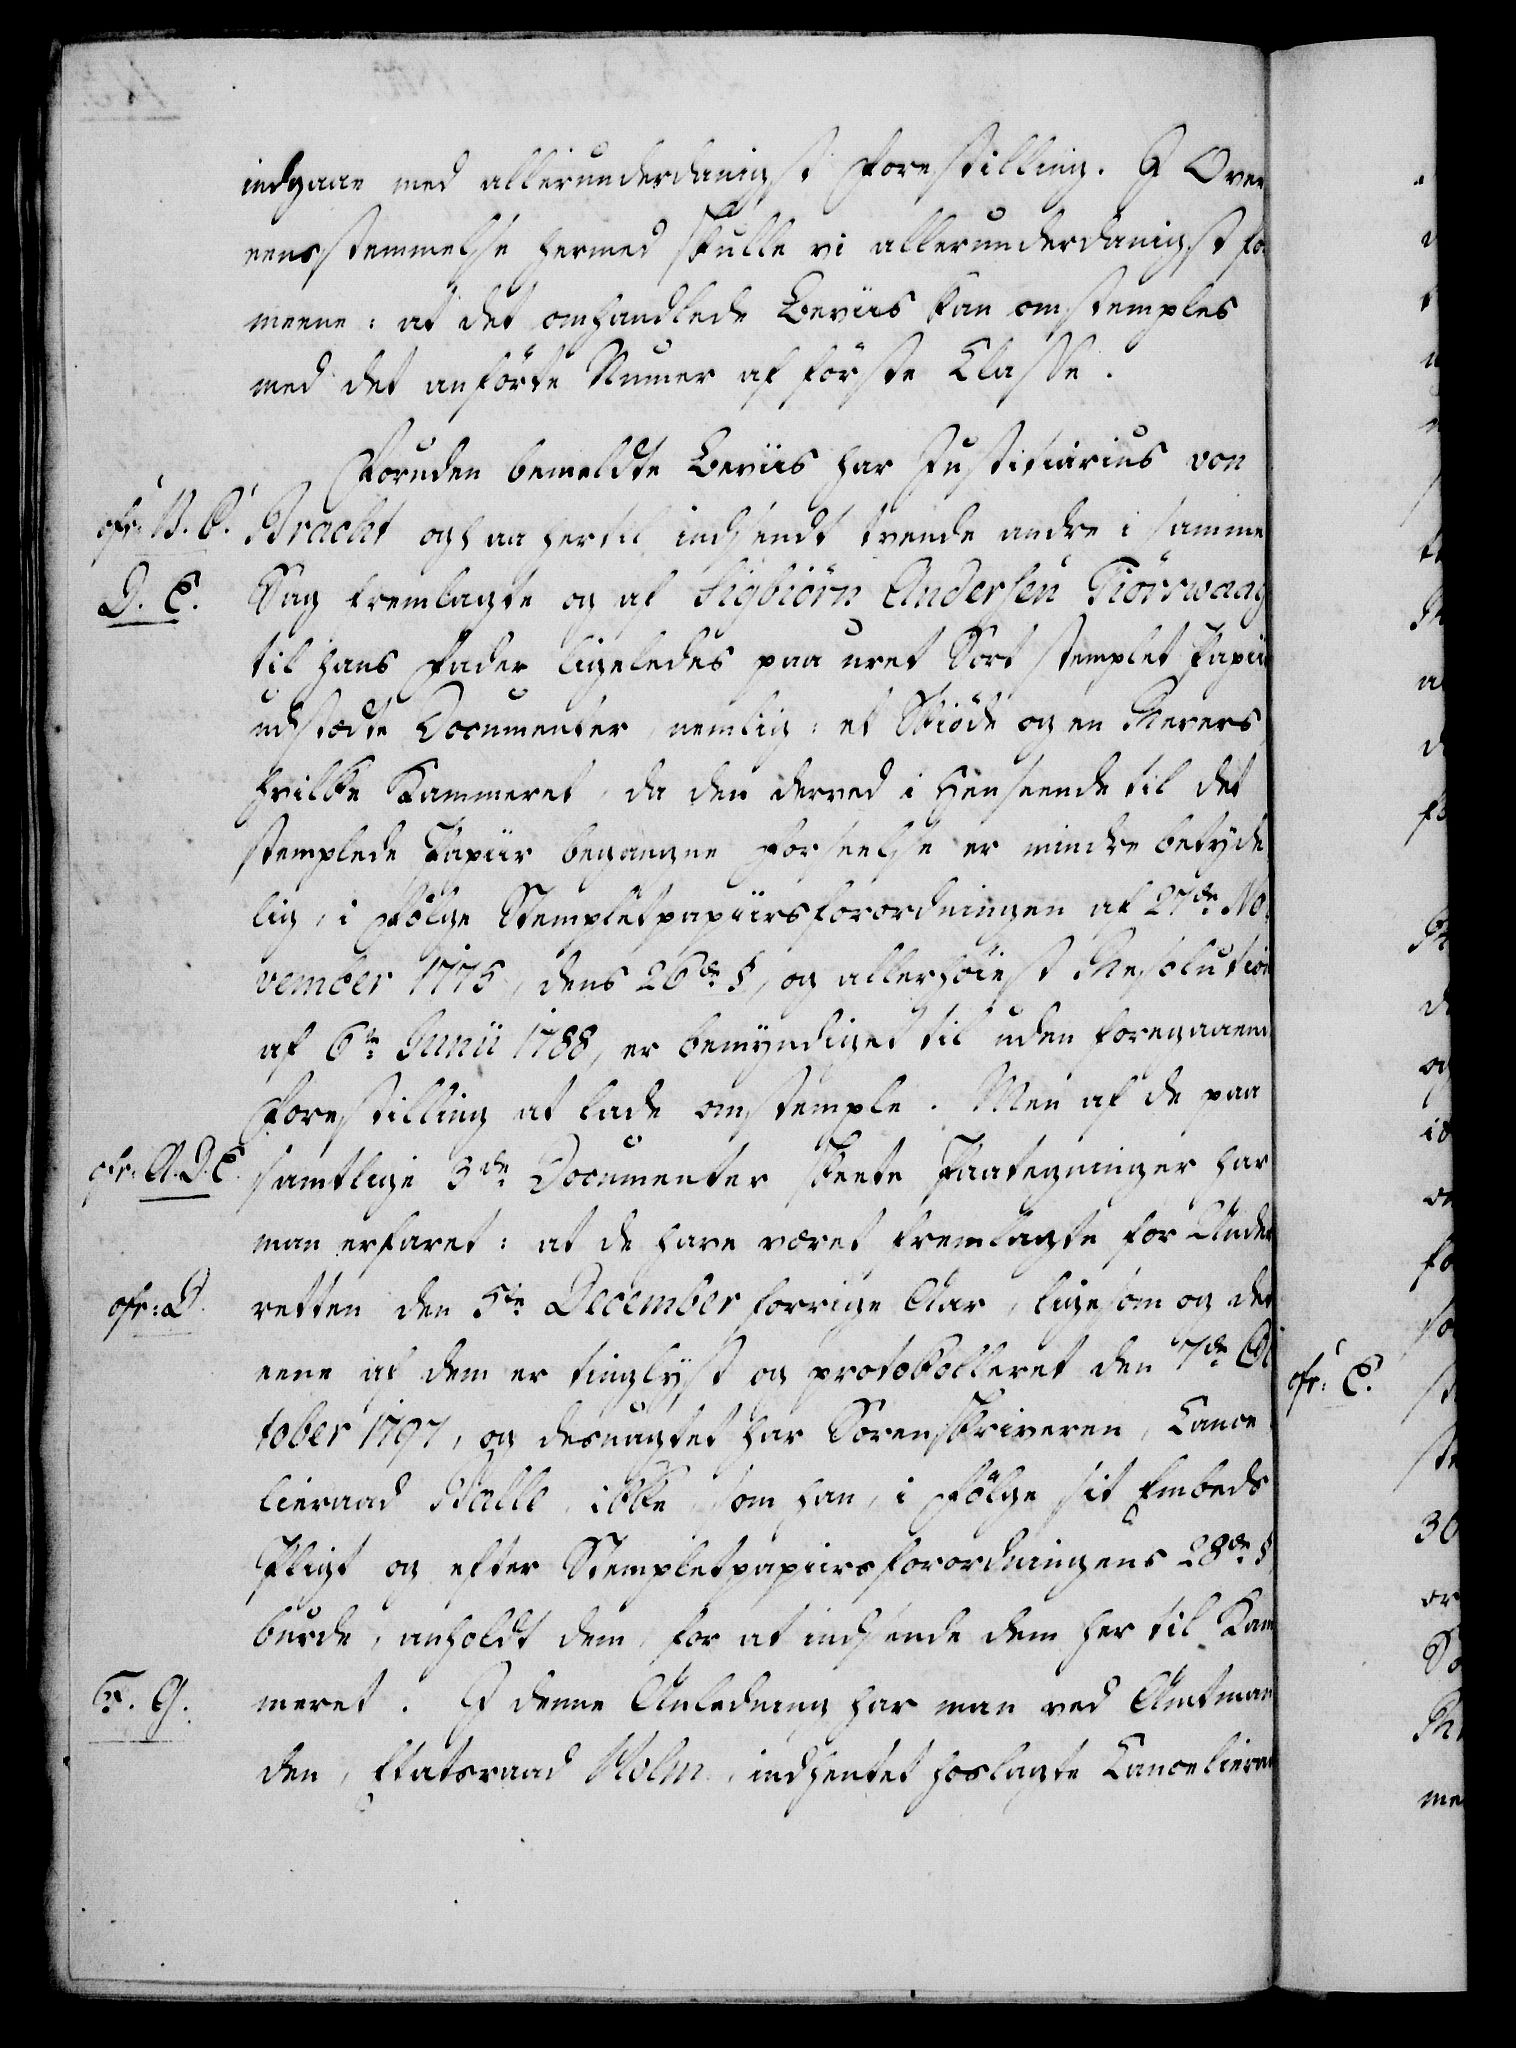 indgaae med allerunderdanigst Forestilling. I Over
eensstemmelse hermed skulle vi allerunderdanigst for
meene: at det omhandlede Beviis kan omstemples
med det anförte Numer af förste Classe.
Foruden bemeldte Beviis har Justitiarius von
cfr: B. C. Bracht ogsaa hertil indsendt tvende andre i samme
D. E. Sag fremlagte og af Sigbiörn Andersen Tiörswaag
til hans Fader ligeledes paa uret Sort stemplet Papiir
udstædte Documenter, nemlig: et Skiöde og en Revers,
hvilke Kammeret, da den derved i Henseende til det
stemplede Papiir begangne Forseelse er mindre betyde
lig, i Fölge Stempletpapiirsforordningen af 27de No
vember 1775, dens 26de §, og allerhöiest Resolution
af 6te Junii 1788, er bemyndiget til uden foregaaende
Forestilling at lade omstemple. Men af de paa
cfr: A. D. E. samtlige 3de Documenter skeete Paategninger har
man erfaret: at de have været fremlagte for Under
cfr: D. retten den 5te December forrige Aar, ligesom og det
eene af dem er tinglyst og protokolleret den 7de Oc
tober 1797, og desuagtet har Sorenskriveren, Cance
lieraad Balle, ikke, som han, i Fölge sit Embeds
Pligt og efter Stempletpapiirsforordningens 28de §,
burde, anholdt dem, for at indsende dem her til Kam
F. G. meret. I denne Anledning har man ved Amtman
den, Etatsraad Holm, indhentet hoslagte Cancelieraad
cfr: E.